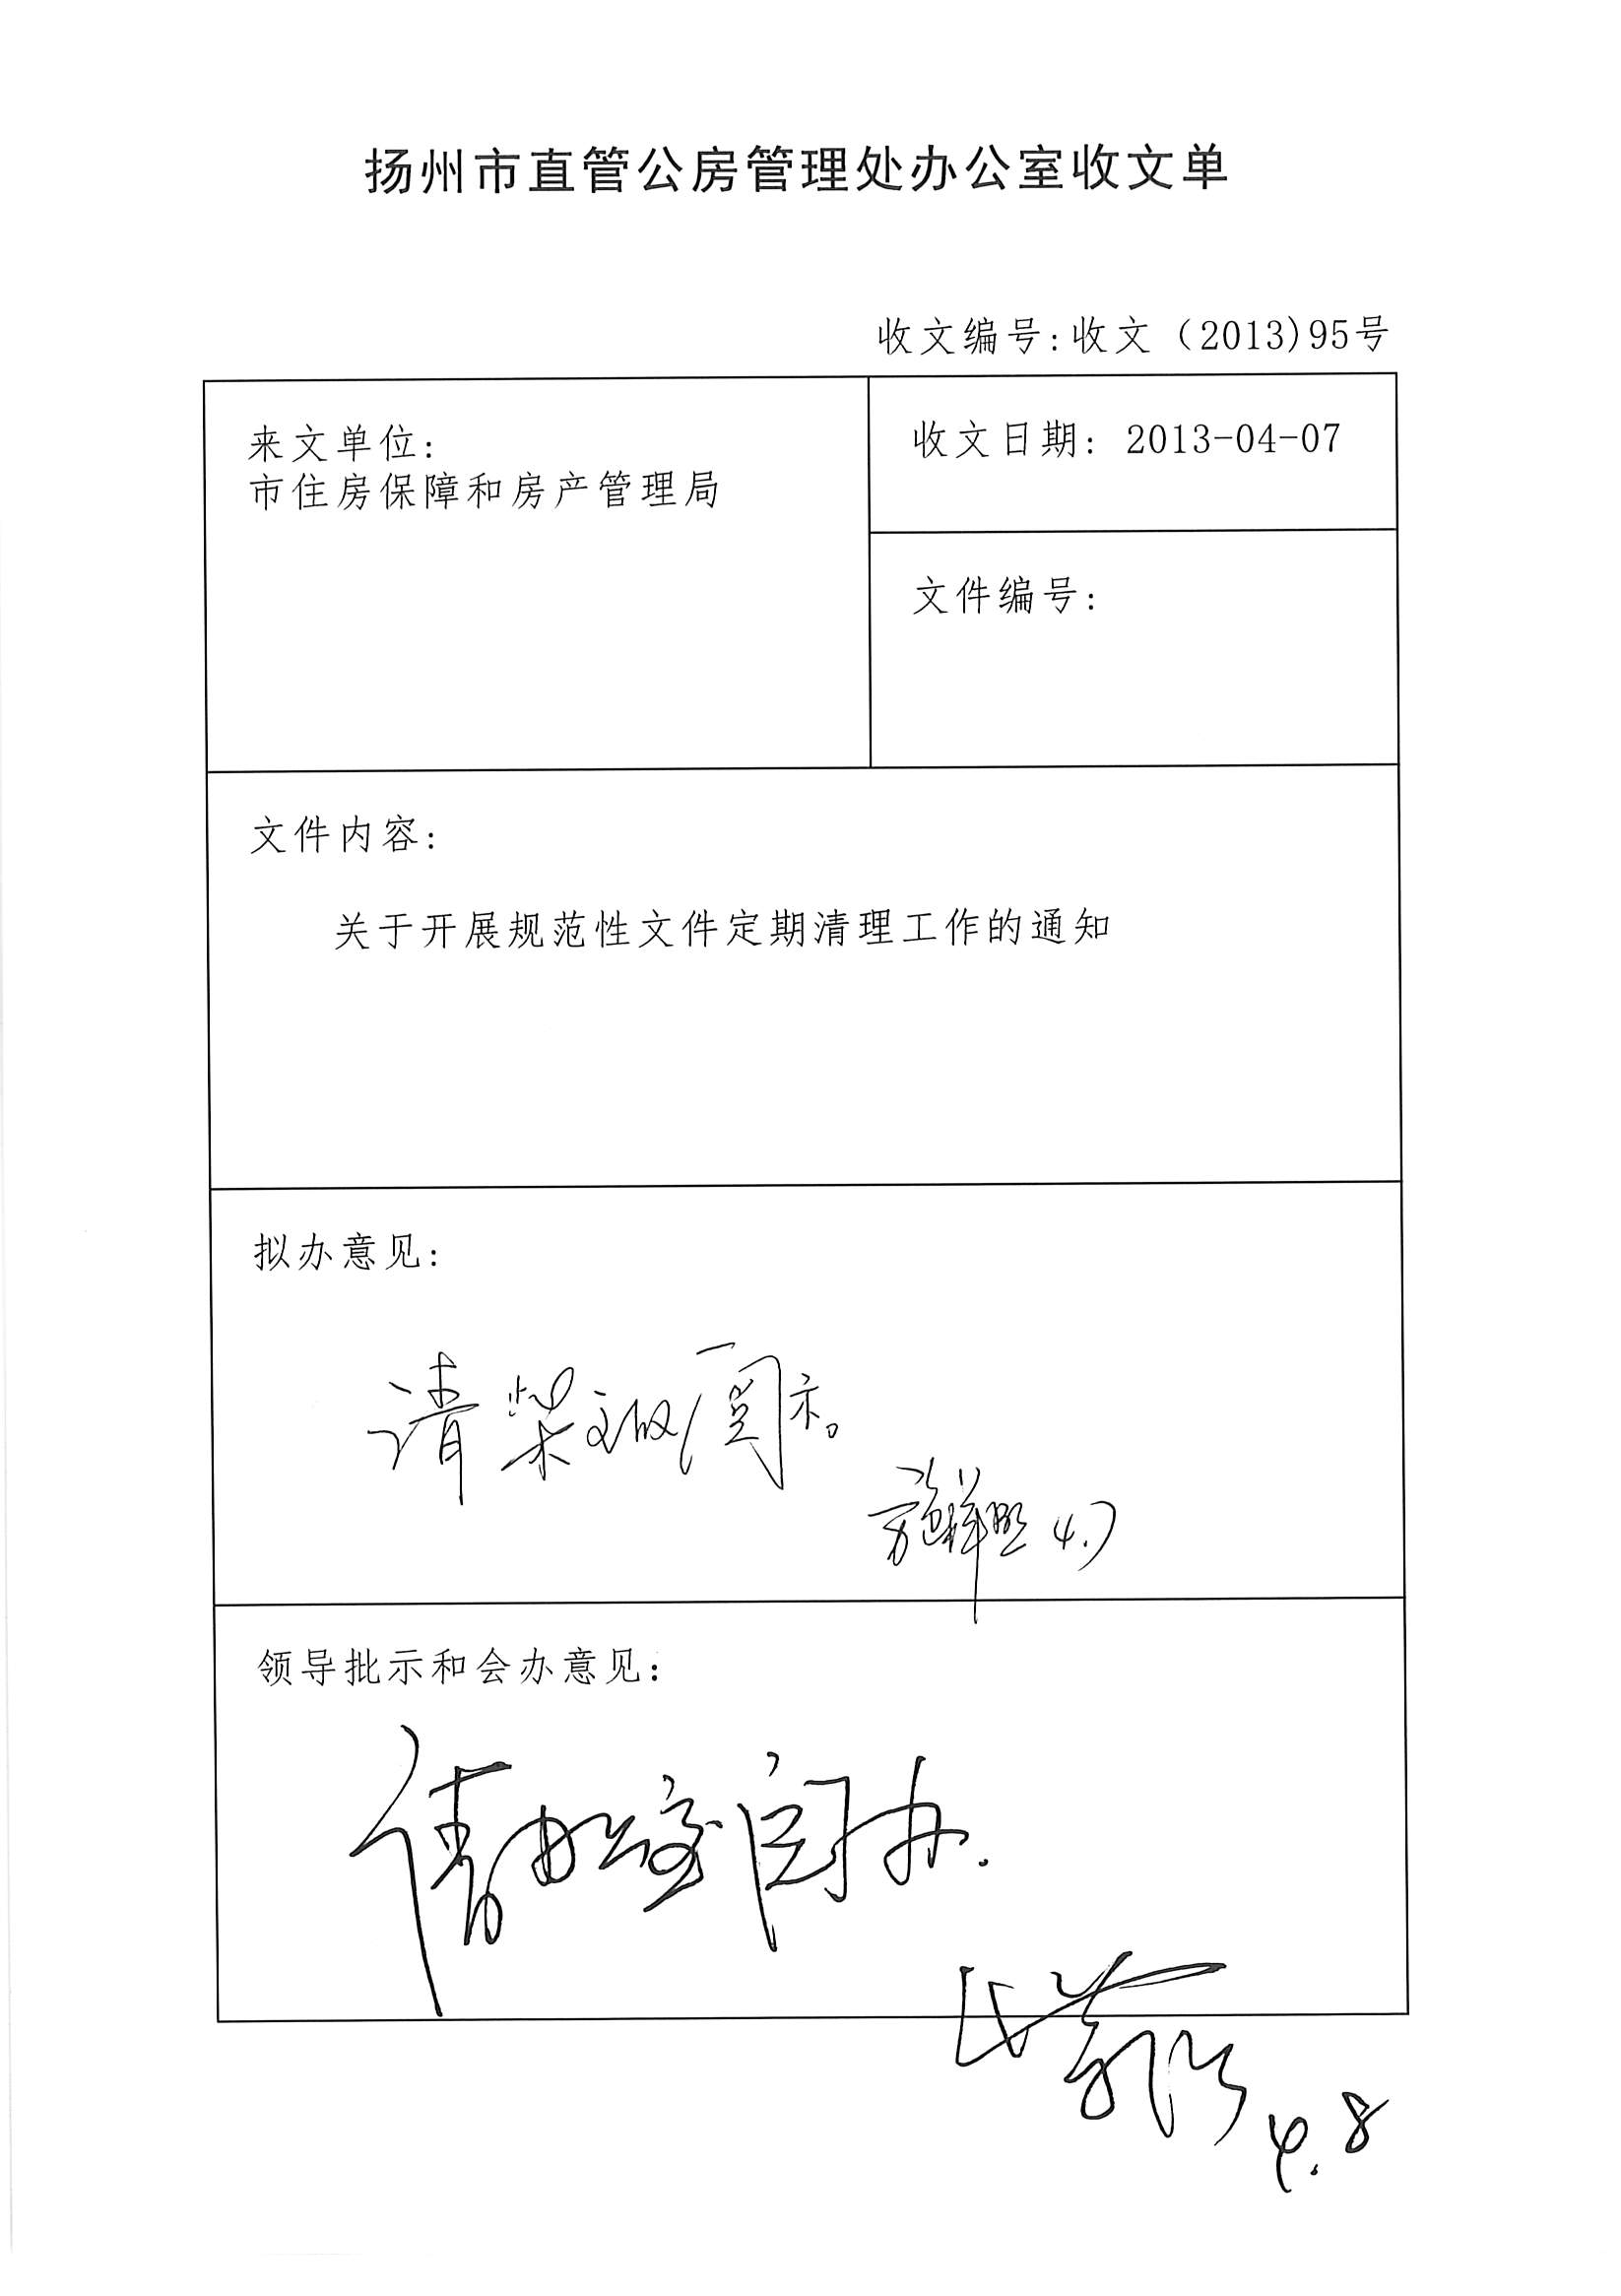 扬州市直管公房管理处办公室收文单
收文编号:收文（2013)95号
来文单位:
市住房保障和房产管理局
收文日期: 2013-04-07
文件编号:
文件内容:
关于开展规范性文件定期清理工作的通知
拟办意见:
请 阅示。
4.7
领导批示和会办意见:
请办公室阅办.
4.8